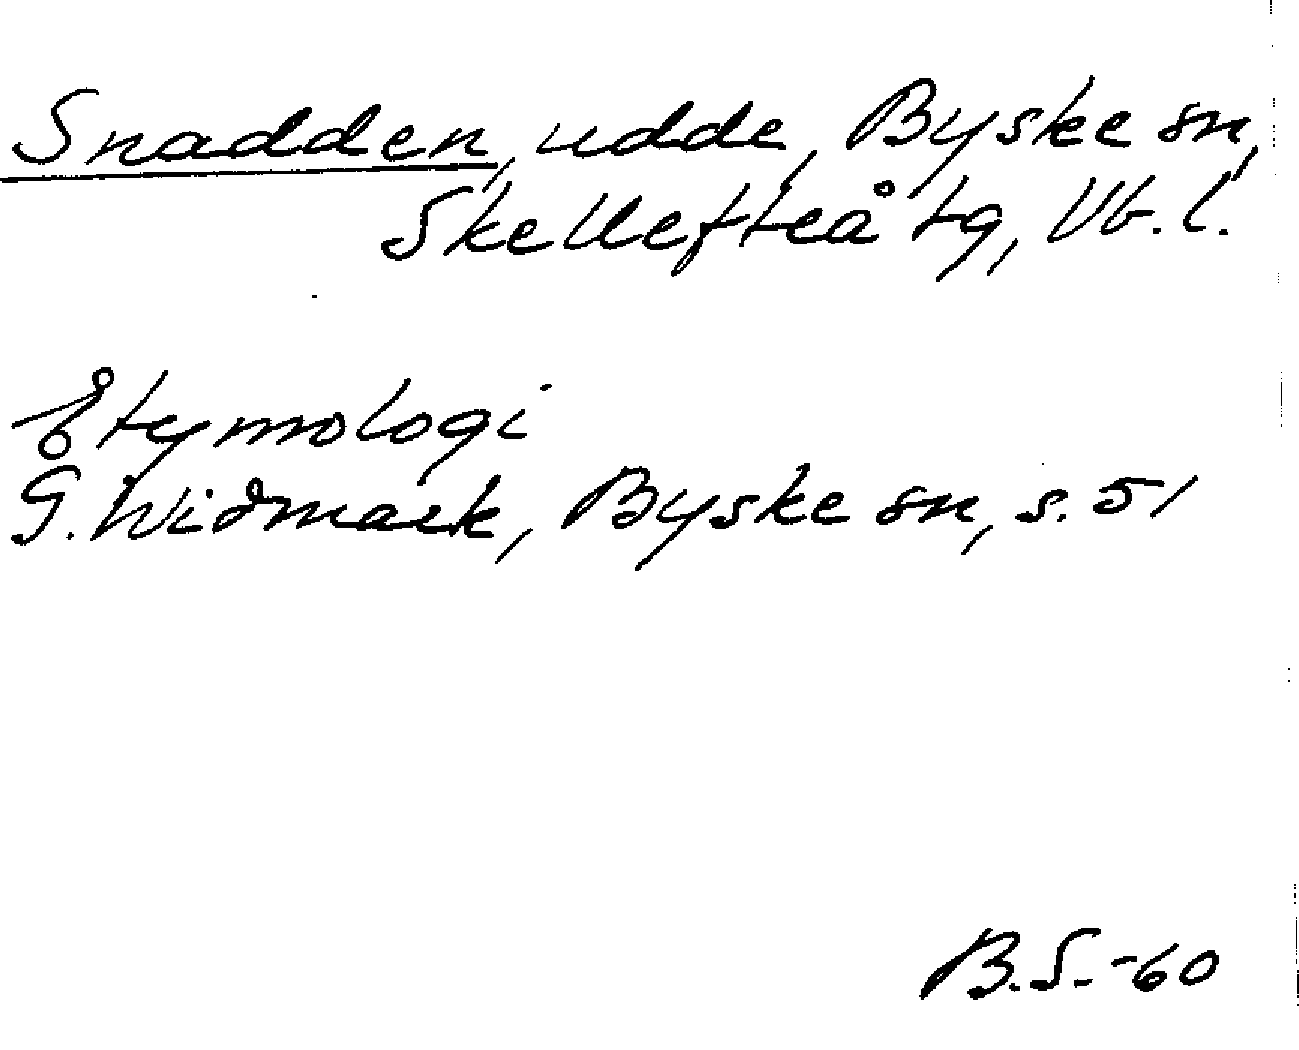 Snadden, udde, Byske sn,
Skellefteå tg, Vb. l.
Etymologi
G. Widmark, Byske sn, s. 51
B.S.-60